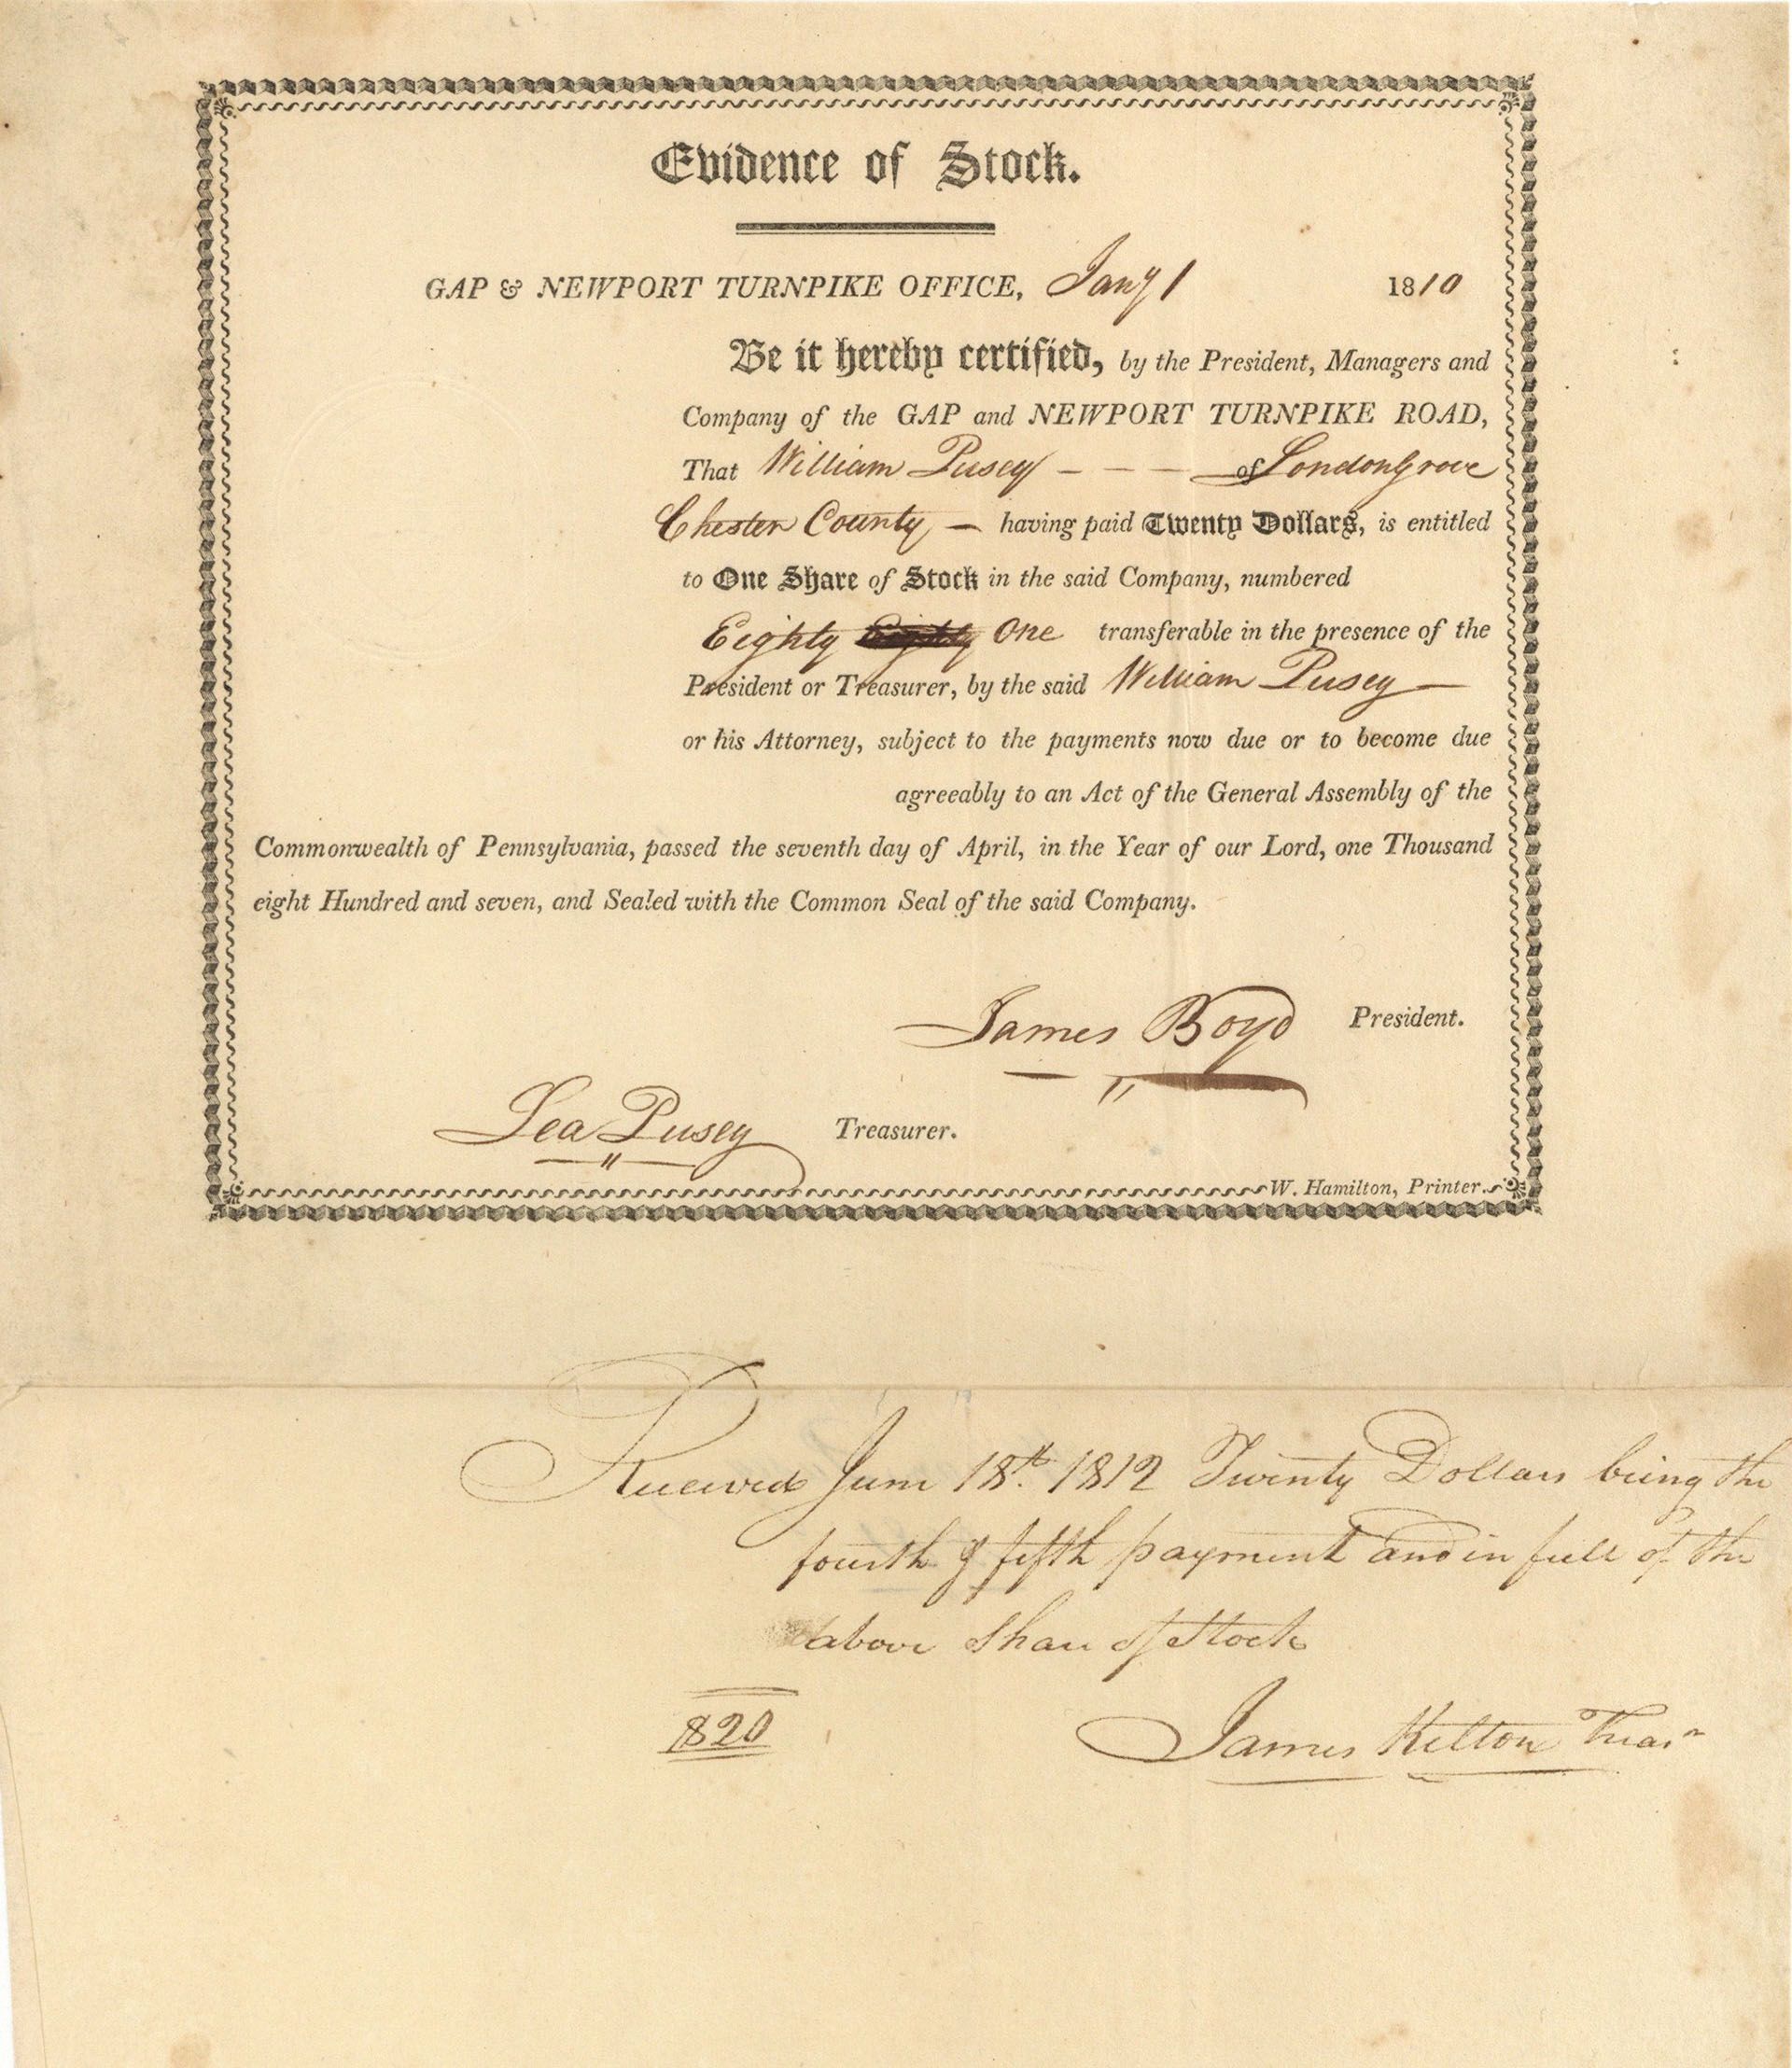 Evidence of Stock.
GAP & NEWPORT TURNPIKE OFFICE, Jany 1 1810
Be it hereby certified, by the President, Managers and
Company of the GAP and NEWPORT TURNPIKE ROAD,
That William Pusey - - - of LondonGrove
Chester County, - having paid Twenty Dollars, is entitled
to One Share of Stock in the said Company, numbered
Eighty One transferable in the presence of the
President or Treasurer, by the said William Pusey —
or his Attorney, subject to the payments now due or to become due
agreeably to an Act of the General Assembly of the
Commonwealth of Pennsylvania, passed the seventh day of April, in the Year of our Lord, one Thousand
eight Hundred and seven, and Sealed with the Common Seal of the said Company.
James Boyd President.
Lea Pusey Treasurer.
W. Hamilton, Printer.
Received June 18th. 1812 Twenty Dollars being the
fourth & fifth payment and in full of the
above Share of Stock
$20
James Kelton Treasr